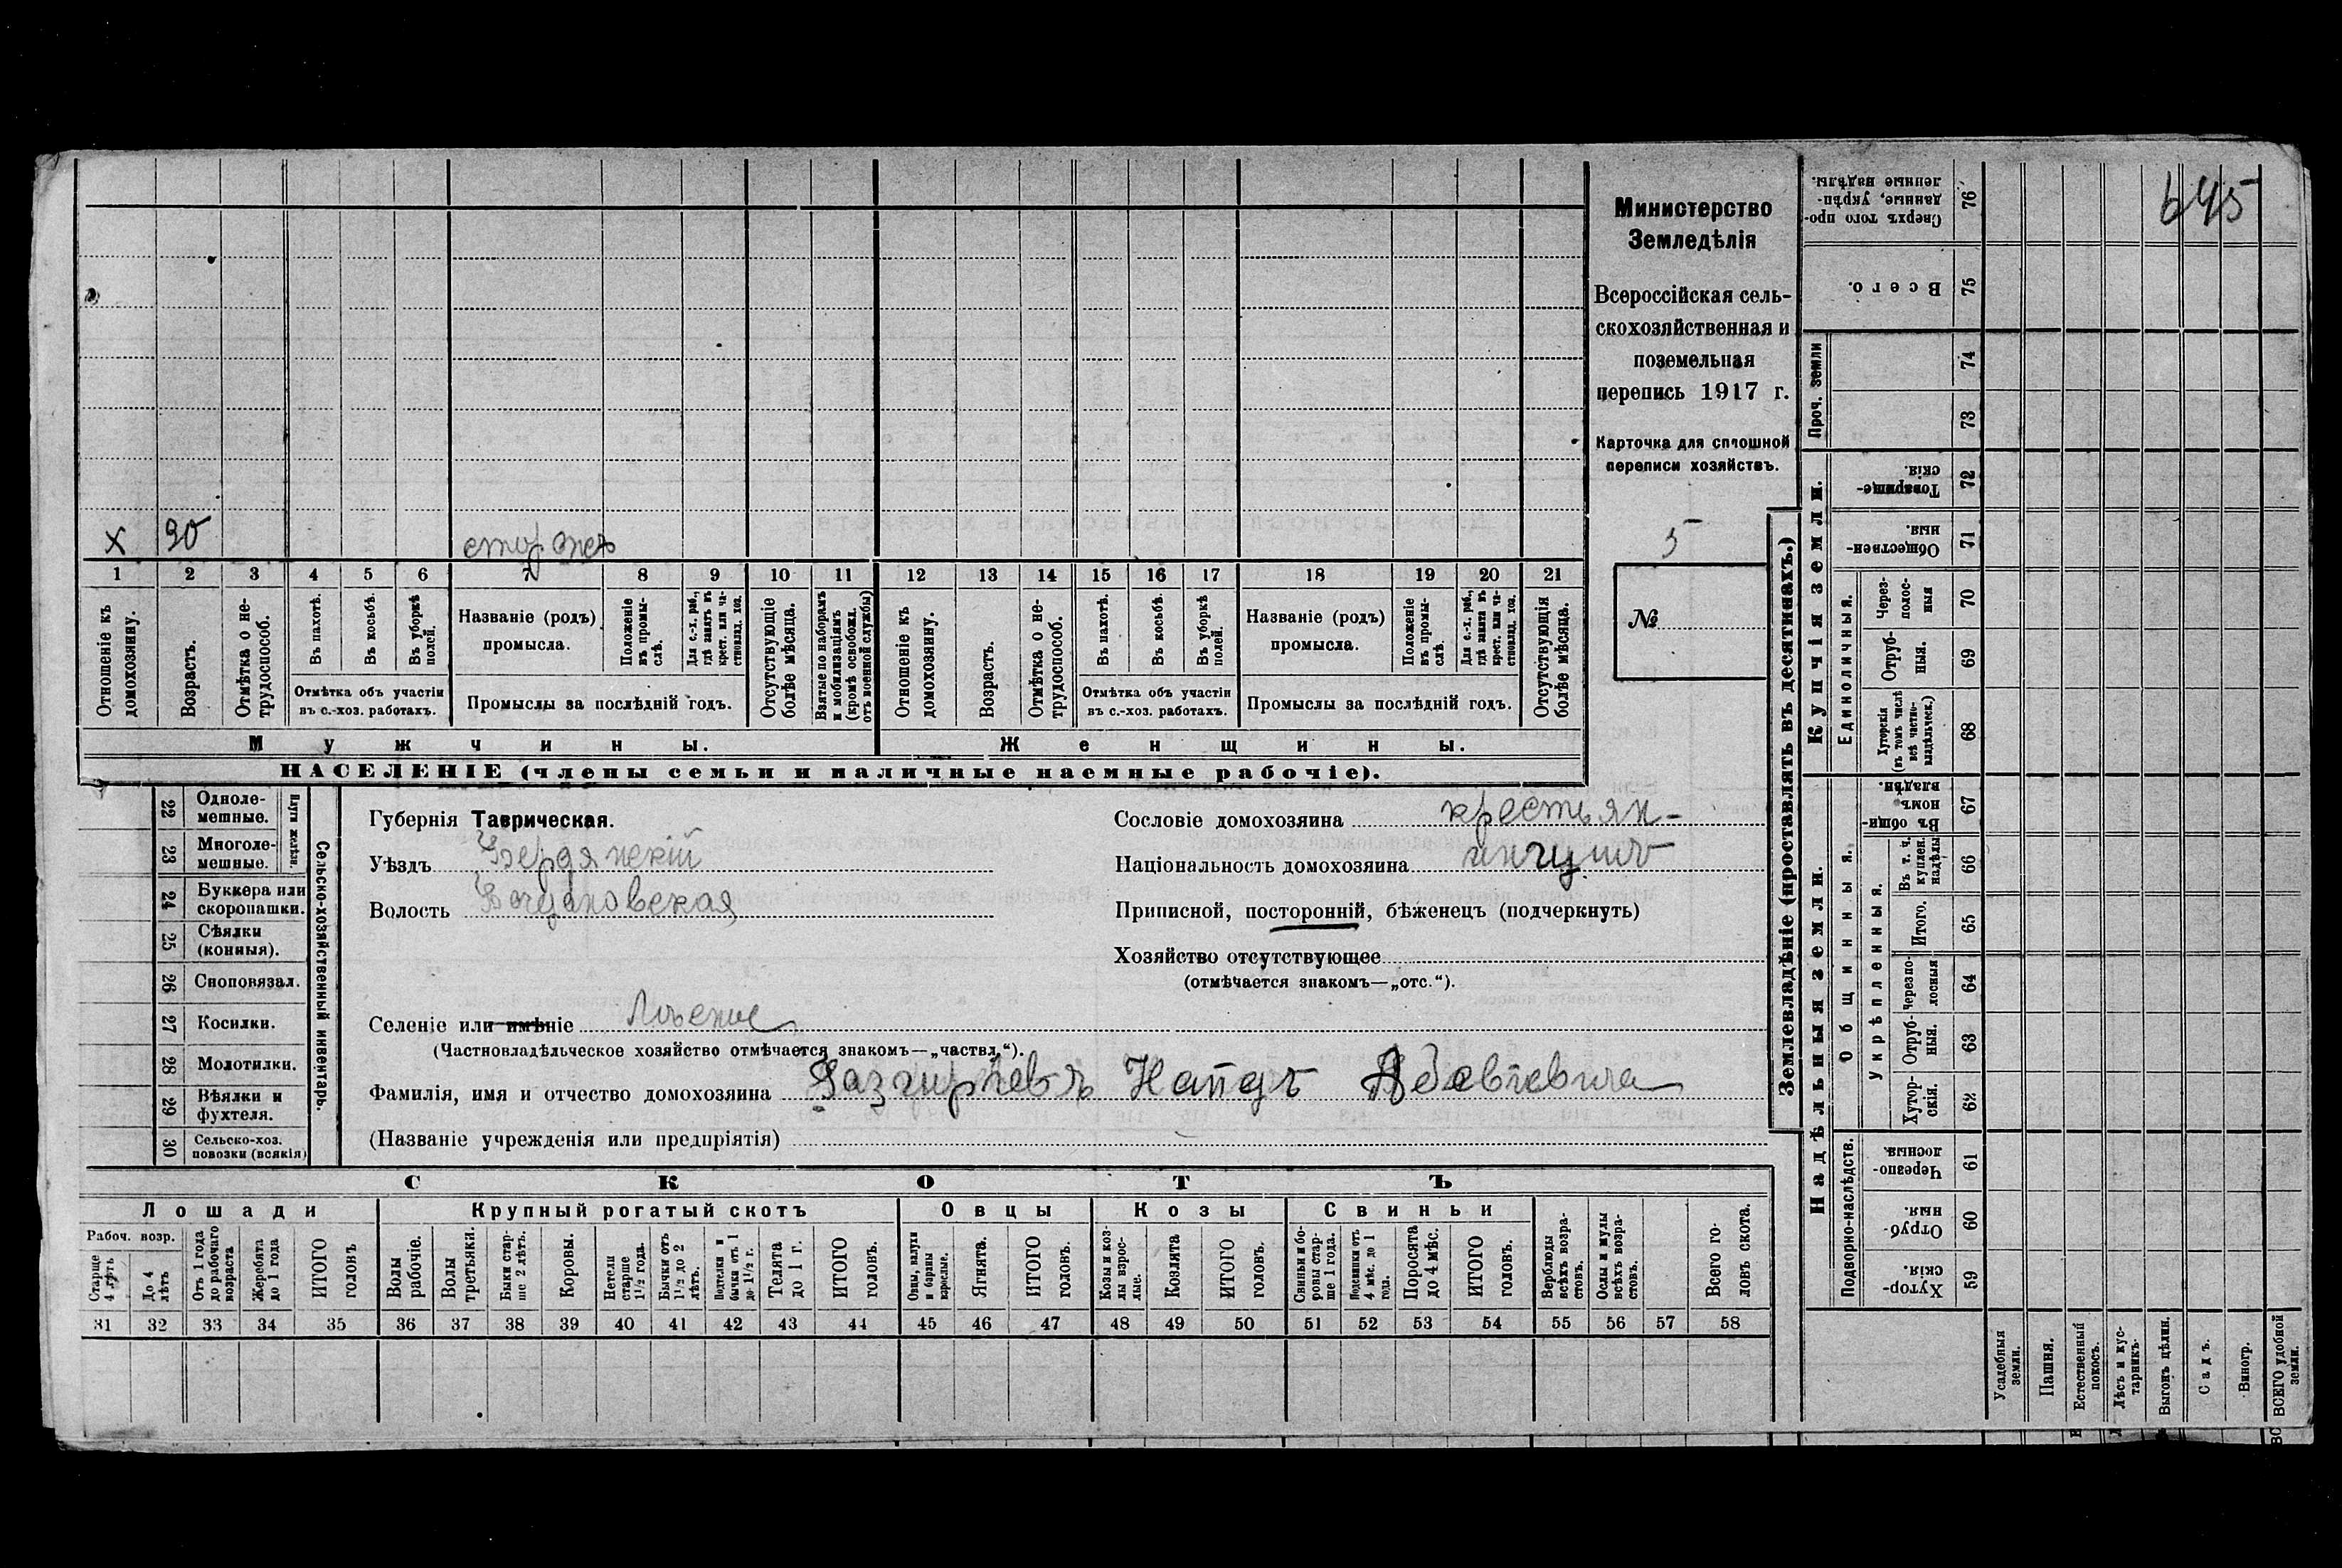 645
Министерство
Земледѣлія
Всероссійская сель-
скохозяйственная и
поземельная
перепись 1917 г.
Карточка для сплошной
переписи хозяйствъ.
5
№
х 30 сторожъ
1 2 3 4 5 6 7 8 9 10 11 12 13 14 15 16 17 18 19 20 21
Отношеніе къ домохозяину.
Возрастъ.
Отмѣтка о не-трудоспособ.
Въ пахотѣ.
Въ косьбѣ.
Въ уборкѣ полей.
Отмѣтка объ участіи
въ с.-хоз. работахъ.
Названіе (родъ)
промысла.
Положеніе въ промы-слѣ.
Для с.-х. раб., гдѣ занятъ въ крест. или ча-стновлад. хоз.
Промыслы за послѣдній годъ.
Отсутствующіе болѣе мѣсяца.
Взятые по наборамъ и мобилизаціямъ (кромѣ освобожд. отъ военной службы)
Отношеніе къ домохозяину.
Возрастъ.
Отмѣтка о не-трудоспособ.
Въ пахотѣ.
Въ косьбѣ.
Въ уборкѣ полей.
Отмѣтка объ участіи
въ с.-хоз. работахъ.
Названіе (родъ)
промысла.
Положеніе въ промы-слѣ.
Для с.-х. раб., гдѣ занята въ крест. или ча-стновлад. хоз.
Промыслы за послѣдній годъ.
Отсутствующія болѣе мѣсяца.
Мужчины.
Женщины.
НАСЕЛЕНІЕ (члены семьи и наличные наемные рабочіе).
22 Одноле-мешные.
23 Многоле-мешные.
Плуги желѣзн.
24 Буккера или скоропашки.
25 Сѣялки (конныя).
26 Сноповязал.
27 Косилки.
28 Молотилки.
29 Вѣялки и фухтеля.
30 Сельско-хоз. повозки (всякія)
Сельско-хозяйственный инвентарь.
Губернія Таврическая.
Уѣздъ Бердянскій
Волость
Сословіе домохозяина крестьян-
Національность домохозяина ингушъ
Приписной, посторонній, бѣженецъ (подчеркнуть)
Хозяйство отсутствующее
(отмѣчается знакомъ—„отс.“).
Селеніе или имѣніе
(Частновладѣльческое хозяйство отмѣчается знакомъ—„частвл.“).
Фамилія, имя и отчество домохозяина
(Названіе учрежденія или предпріятія)
СКОТЪ
Лошади
Крупный рогатый скотъ
Овцы
Козы
Свиньи
Рабоч. возр.
Старше 4 лѣтъ
До 4 лѣтъ
Отъ 1 года до рабочаго возраста
Жеребята до 1 года
ИТОГО головъ
Волы рабочіе.
Волы третьяки.
Быки стар-ше 2 лѣтъ.
Коровы.
Нетели старше 1½ года.
Бычки отъ 1½ до 2 лѣтъ.
Подтелки и бычки отъ 1 до 1½ г.
Телята до 1 г.
ИТОГО головъ.
Овцы, валухи и бараны взрослые.
Ягнята.
ИТОГО головъ.
Козы и коз-лы взрос-лые.
Козлята
ИТОГО головъ.
Свиньи и бо-ровы стар-ше 1 года.
Подсвинки отъ 4 мѣс. до 1 года.
Поросята до 4 мѣс.
ИТОГО головъ.
Верблюды всѣхъ возра-стовъ.
Ослы и мулы всѣхъ возра-стовъ.
Всего го-ловъ скота.
31 32 33 34 35 36 37 38 39 40 41 42 43 44 45 46 47 48 49 50 51 52 53 54 55 56 57 58
Землевладѣніе (проставлять въ десятинахъ.)
Купчія земли.
Надѣльныя земли.
76 Сверхъ того про-данные, укрѣп-ленные надѣлы.
75 Всего.
Проч. земли
74
73
72 Товарище-скія.
71 Обществен-ныя.
Единоличныя.
70 Через-полос-ныя
69 Отруб-ныя.
68 Хуторскія (въ томъ числѣ всѣ частно-владѣльческ.)
Общинныя.
67 Въ общин-номъ владѣн.
Укрѣпленныя.
66 Въ т. ч. куплен. надѣлы
65 Итого.
64 Черезпо-лосныя
63 Отруб-ныя.
62 Хутор-скія.
Подворно-наслѣдств.
61 Черезпо-лосныя.
60 Отруб-ныя.
59 Хутор-скія.
Усадебныя земли.
Пашня.
Естественный покосъ.
Лѣсъ и кус-тарникъ.
Выгонъ цѣлин.
Садъ.
Виногр.
ВСЕГО удобной земли.